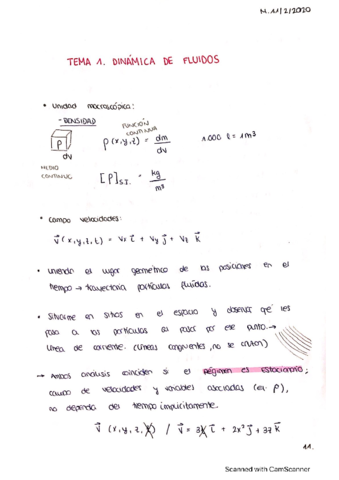 M. 11/2/2020
TEMA 1. DINÁMICA DE FLUIDOS
• Unidad macroscópica:
- DENSIDAD
FUNCIÓN
CONTINUA
ρ (x, y, z) = dm/dv
1.000 l = 1m³
ρ
dv
MEDIO
CONTINUO
[ρ]S.I. = kg/m³
• Campo velocidades:
v⃗ (x, y, z, t) = Vx i⃗ + Vy j⃗ + Vz k⃗
• Uniendo el lugar geométrico de las posiciones en el
tiempo → trayectoria partículas fluidas.
• Situarme en sitios en el espacio y observar qué les
pasa a las partículas al pasar por ese punto →
línea de corriente. (líneas congruentes, no se cortan)
→ Ambos análisis coinciden si el Régimen es Estacionario;
campo de velocidades y variables asociadas (ex: ρ),
no dependa del tiempo implícitamente.
v⃗ (x, y, z, t) / v⃗ = 3t i⃗ + 2x² j⃗ + 37 k⃗
11.
Scanned with CamScanner